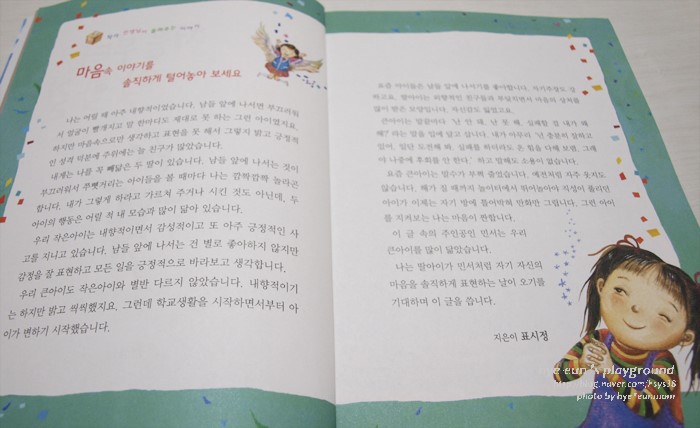 마음속 이야기를
솔직하게 털어놓아 보세요
나는 어릴 때 아주 내향적이었습니다. 남들 앞에 나서면 부끄러워
서 얼굴이 빨개지고 말 한마디도 제대로 못 하는 그런 아이였지요.
하지만 마음속으로만 생각하고 표현을 못 해서 그렇지 밝고 긍정적
인 성격 덕분에 주위에는 늘 친구가 많았습니다.
내게는 나를 꼭 빼닮은 두 딸이 있습니다. 남들 앞에 나서는 것이
부끄러워서 쭈뼛거리는 아이들을 볼 때마다 나는 깜짝깜짝 놀라곤
합니다. 내가 그렇게 하라고 가르쳐 주거나 시킨 것도 아닌데, 두
아이의 행동은 어릴 적 내 모습과 많이 닮아 있습니다.
우리 작은아이는 내향적이면서 감성적이고 또 아주 긍정적인 사
고를 지니고 있습니다. 남들 앞에 나서는 건 별로 좋아하지 않지만
감정을 잘 표현하고 모든 일을 긍정적으로 바라보고 생각합니다.
우리 큰아이도 작은아이와 별반 다르지 않았습니다. 내향적이기
는 하지만 밝고 씩씩했지요. 그런데 학교생활을 시작하면서부터 아
이가 변하기 시작했습니다.
요즘 아이들은 남들 앞에 나서기를 좋아합니다. 자기주장도 강
하고요. 딸아이는 외향적인 친구들과 부딪치면서 마음의 상처를
많이 받은 모양입니다. 자신감도 잃었고요.
큰아이는 말끝마다 '난 안 돼, 난 못 해. 실패할 걸 내가 왜
해?' 라는 말을 입에 달고 삽니다. 내가 아무리 '넌 충분히 잘하고
있어. 일단 도전해 봐. 실패를 하더라도 온 힘을 다해 보렴. 그래
야 나중에 후회를 안 한다.' 하고 말해도 소용이 없습니다.
요즘 큰아이는 말수가 부쩍 줄었습니다. 예전처럼 자주 웃지도
않습니다. 해가 질 때까지 놀이터에서 뛰어놀아야 직성이 풀리던
아이가 이제는 자기 방에 틀어박혀 만화만 그립니다. 그런 아이
를 지켜보는 나는 마음이 짠합니다.
이 글 속의 주인공인 민서는 우리
큰아이를 많이 닮았습니다.
나는 딸아이가 민서처럼 자기 자신의
마음을 솔직하게 표현하는 날이 오기를
기대하며 이 글을 씁니다.
지은이 표시정
eun's playground
blog.naver.com/hsys36
photo by hye*eunmam